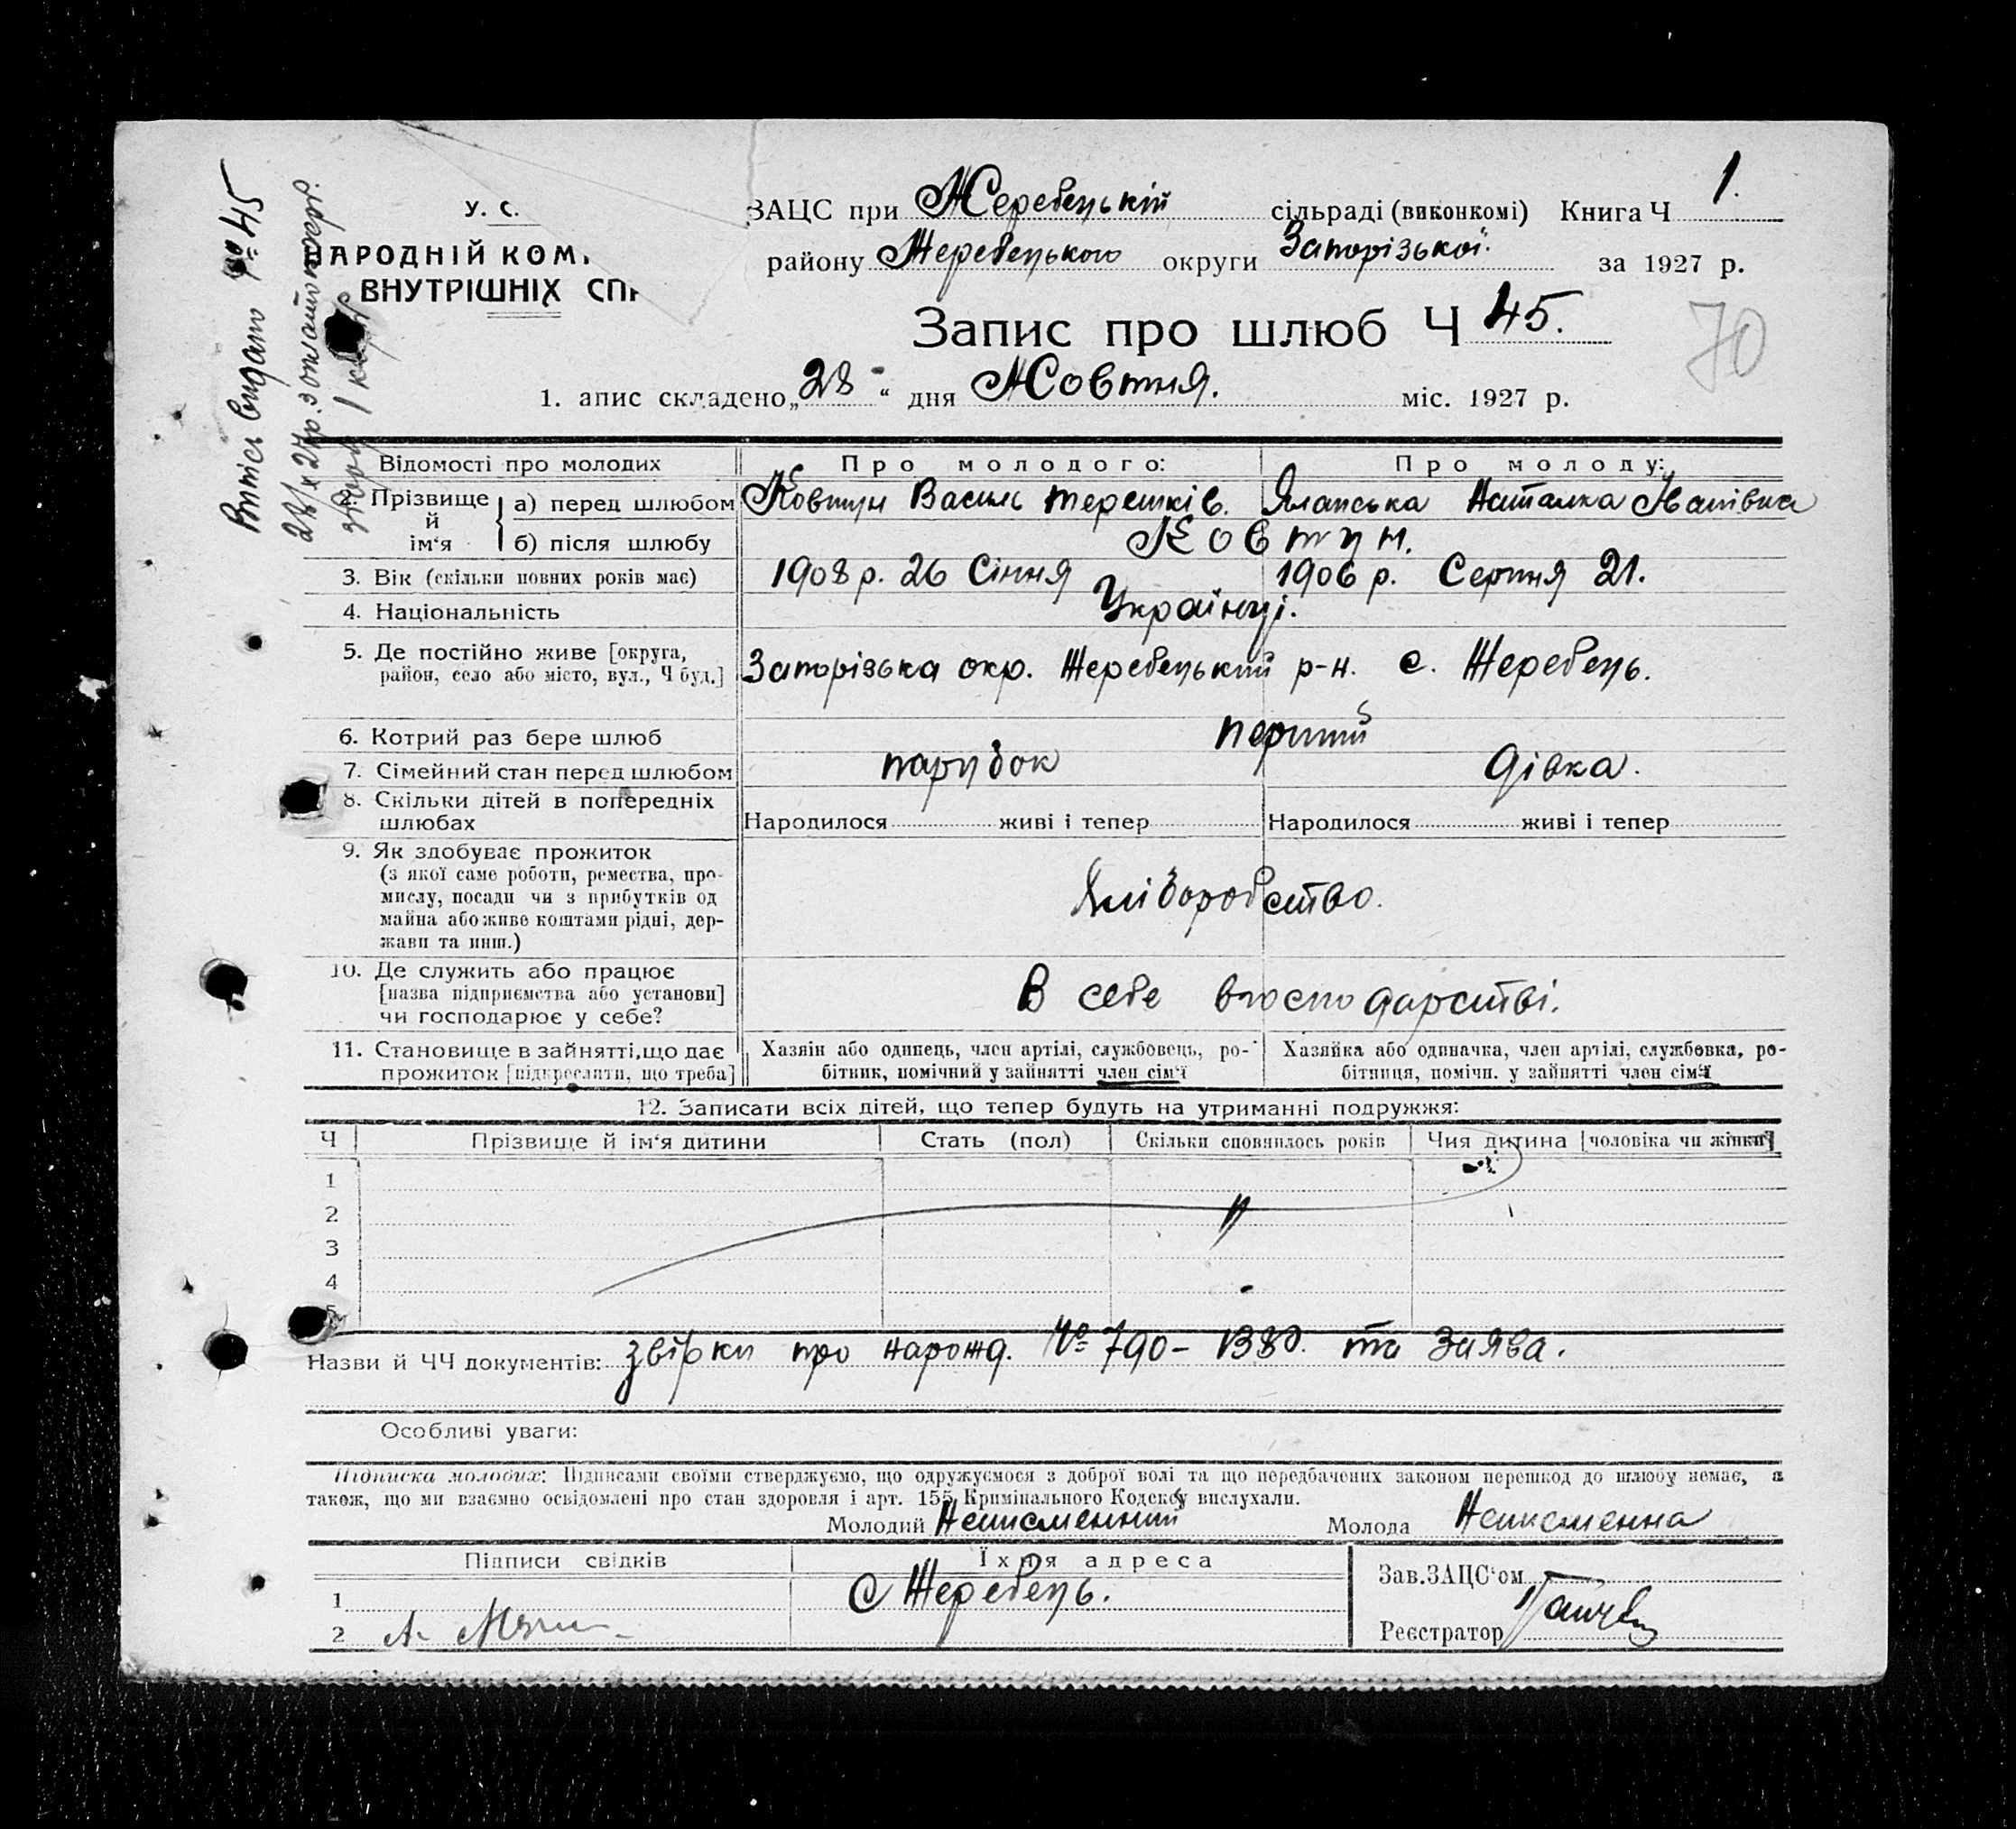 Витись видано № 45
28/X 27 р. з оплатою герб.
У. С.
АРОДНІЙ КОМ
ВНУТРІШНІХ СП
ЗАЦС при Жеребецькій сільраді (виконкомі) Книга Ч 1.
району Жеребецького округи Запорізької. за 1927 р.
Запис про шлюб Ч 45.
70
1. апис складено „28“ дня Жовтня. міс. 1927 р.
Відомості про молодих Про молодого: Про молоду:
2. Прізвище й ім‘я а) перед шлюбом Ковтун Василь терешків. Наталка Іванівна
б) після шлюбу Ковтун.
3. Вік (скільки повних років має) 1908 р. 26 Січня 1906 р. Серпня 21.
4. Національність Українці.
5. Де постійно живе [округа, Запорізька окр. Жеребецький р-н. с. Жеребець.
район, село або місто, вул., Ч буд.]
6. Котрий раз бере шлюб перший
7. Сімейний стан перед шлюбом парубок дівка.
8. Скільки дітей в попередніх
шлюбах Народилося живі і тепер Народилося живі і тепер
9. Як здобуває прожиток
(з якої саме роботи, ремества, про-
мислу, посади чи з прибутків од Хліборобство.
майна або живе коштами рідні, дер-
жави та инш.)
10. Де служить або працює
[назва підприємства або установи] В себе вгосподарстві.
чи господарює у себе?
11. Становище в зайнятті, що дає Хазяін або одинець, член артілі, службовець, ро- Хазяйка або одиначка, член артілі, службовка, ро-
прожиток [підкреслити, що треба] бітник, помічний у зайнятті член сім‘ї бітниця, помічн. у зайнятті член сім‘ї
12. Записати всіх дітей, що тепер будуть на утриманні подружжя:
Ч Прізвище й ім‘я дитини Стать (пол) Скільки сповнилось років Чия дитина [чоловіка чи жінки]
1
2
3
4
5
Назви й ЧЧ документів: звірки про нарожд. № 790 – та заява.
Особливі уваги:
Підписка молодих: Підписами своїми стверджуємо, що одружуємося з доброї волі та що передбачених законом перешкод до шлюбу немає, а
також, що ми взаємно освідомлені про стан здоровля і арт. 155 Кримінального Кодексу вислухали.
Молодий Неписменний Молода Неписменна
Підписи свідків Їхня адреса
Зав. ЗАЦС‘ом
1 С Жеребець.
2 А. Реєстратор